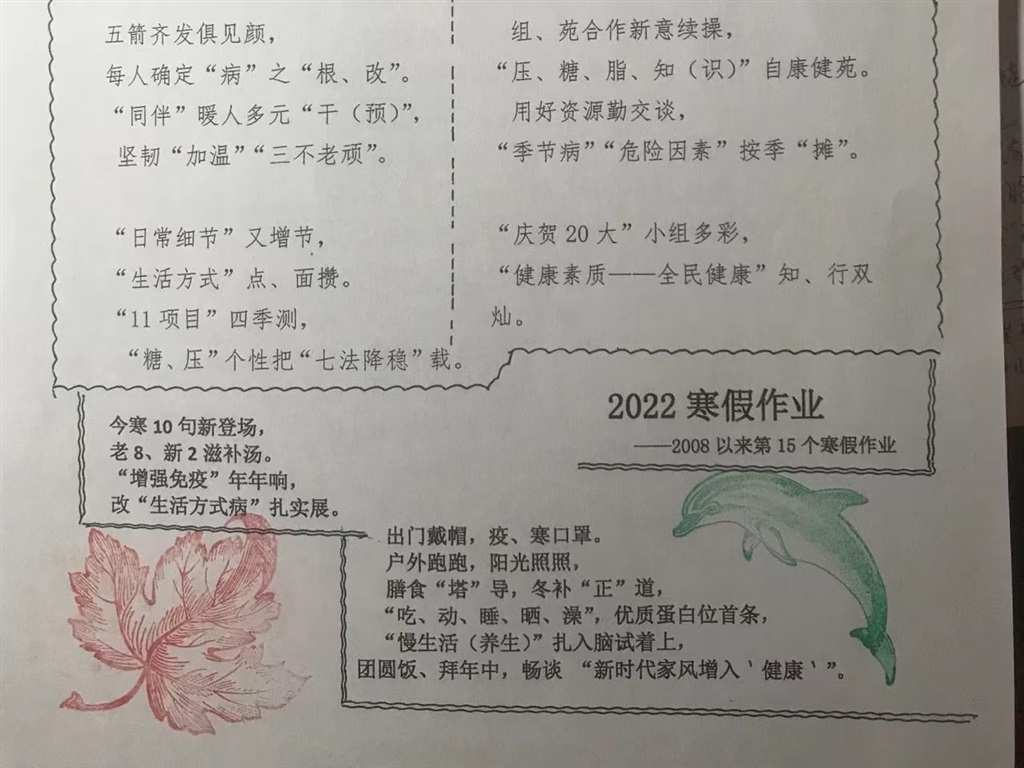 五箭齐发俱见颜，
每人确定“病”之“根、改”。
“同伴”暖人多元“干（预）”，
坚韧“加温”“三不老顽”。
“日常细节”又增节，
“生活方式”点、面攒。
“11 项目”四季测，
“糖、压”个性把“七法降稳”载。
组、苑合作新意续操，
“压、糖、脂、知（识）”自康健苑。
用好资源勤交谈，
“季节病”“危险因素”按季“摊”。
“庆贺 20 大”小组多彩，
“健康素质——全民健康”知、行双
灿。
2022 寒假作业
——2008 以来第 15 个寒假作业
今寒 10 句新登场，
老 8、新 2 滋补汤。
“增强免疫”年年响，
改“生活方式病”扎实展。
出门戴帽，疫、寒口罩。
户外跑跑，阳光照照，
膳食“塔”导，冬补“正”道，
“吃、动、睡、晒、澡”，优质蛋白位首条，
“慢生活（养生）”扎入脑试着上，
团圆饭、拜年中，畅谈 “新时代家风增入‵健康‵”。